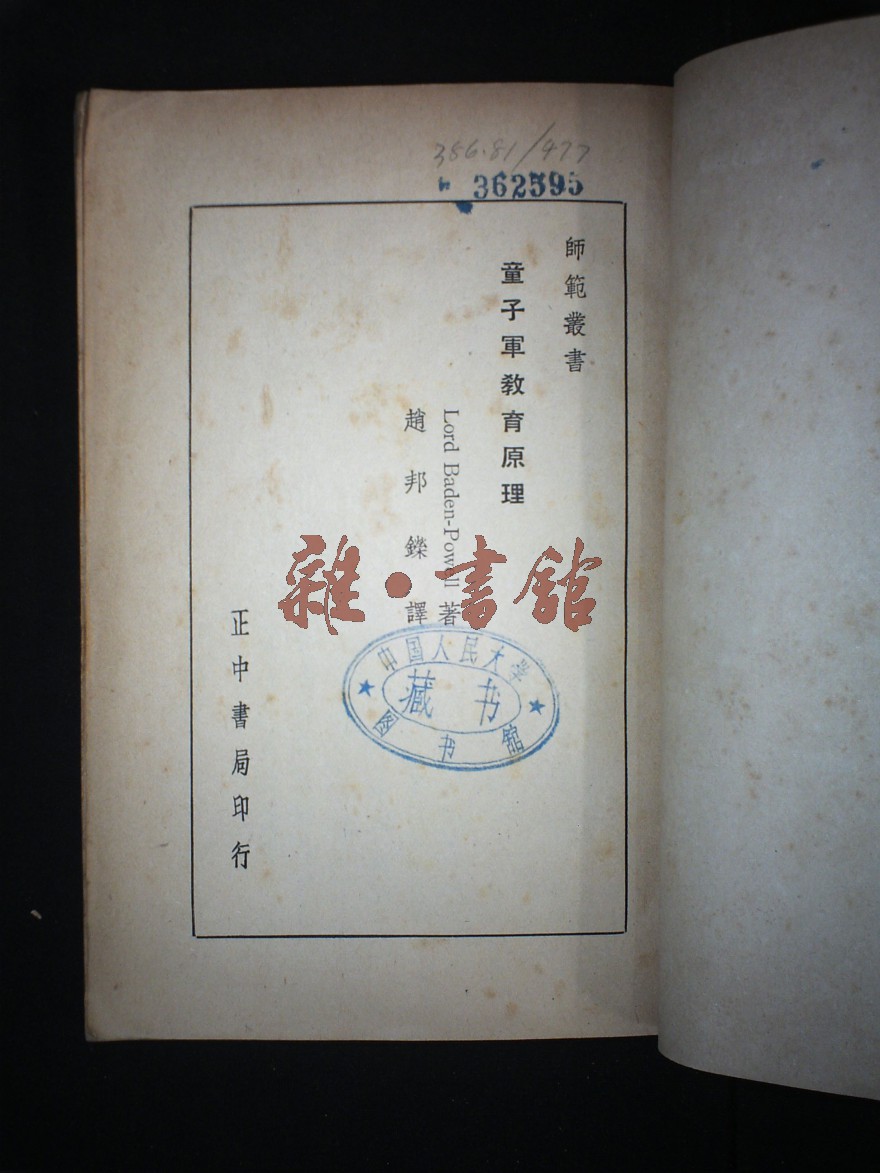 386.81/477
362595
師範叢書
童子軍教育原理
Lord Baden-Powell 著
趙邦鑅 譯
正中書局印行
雜·書館
中国人民大学
藏书
图书馆